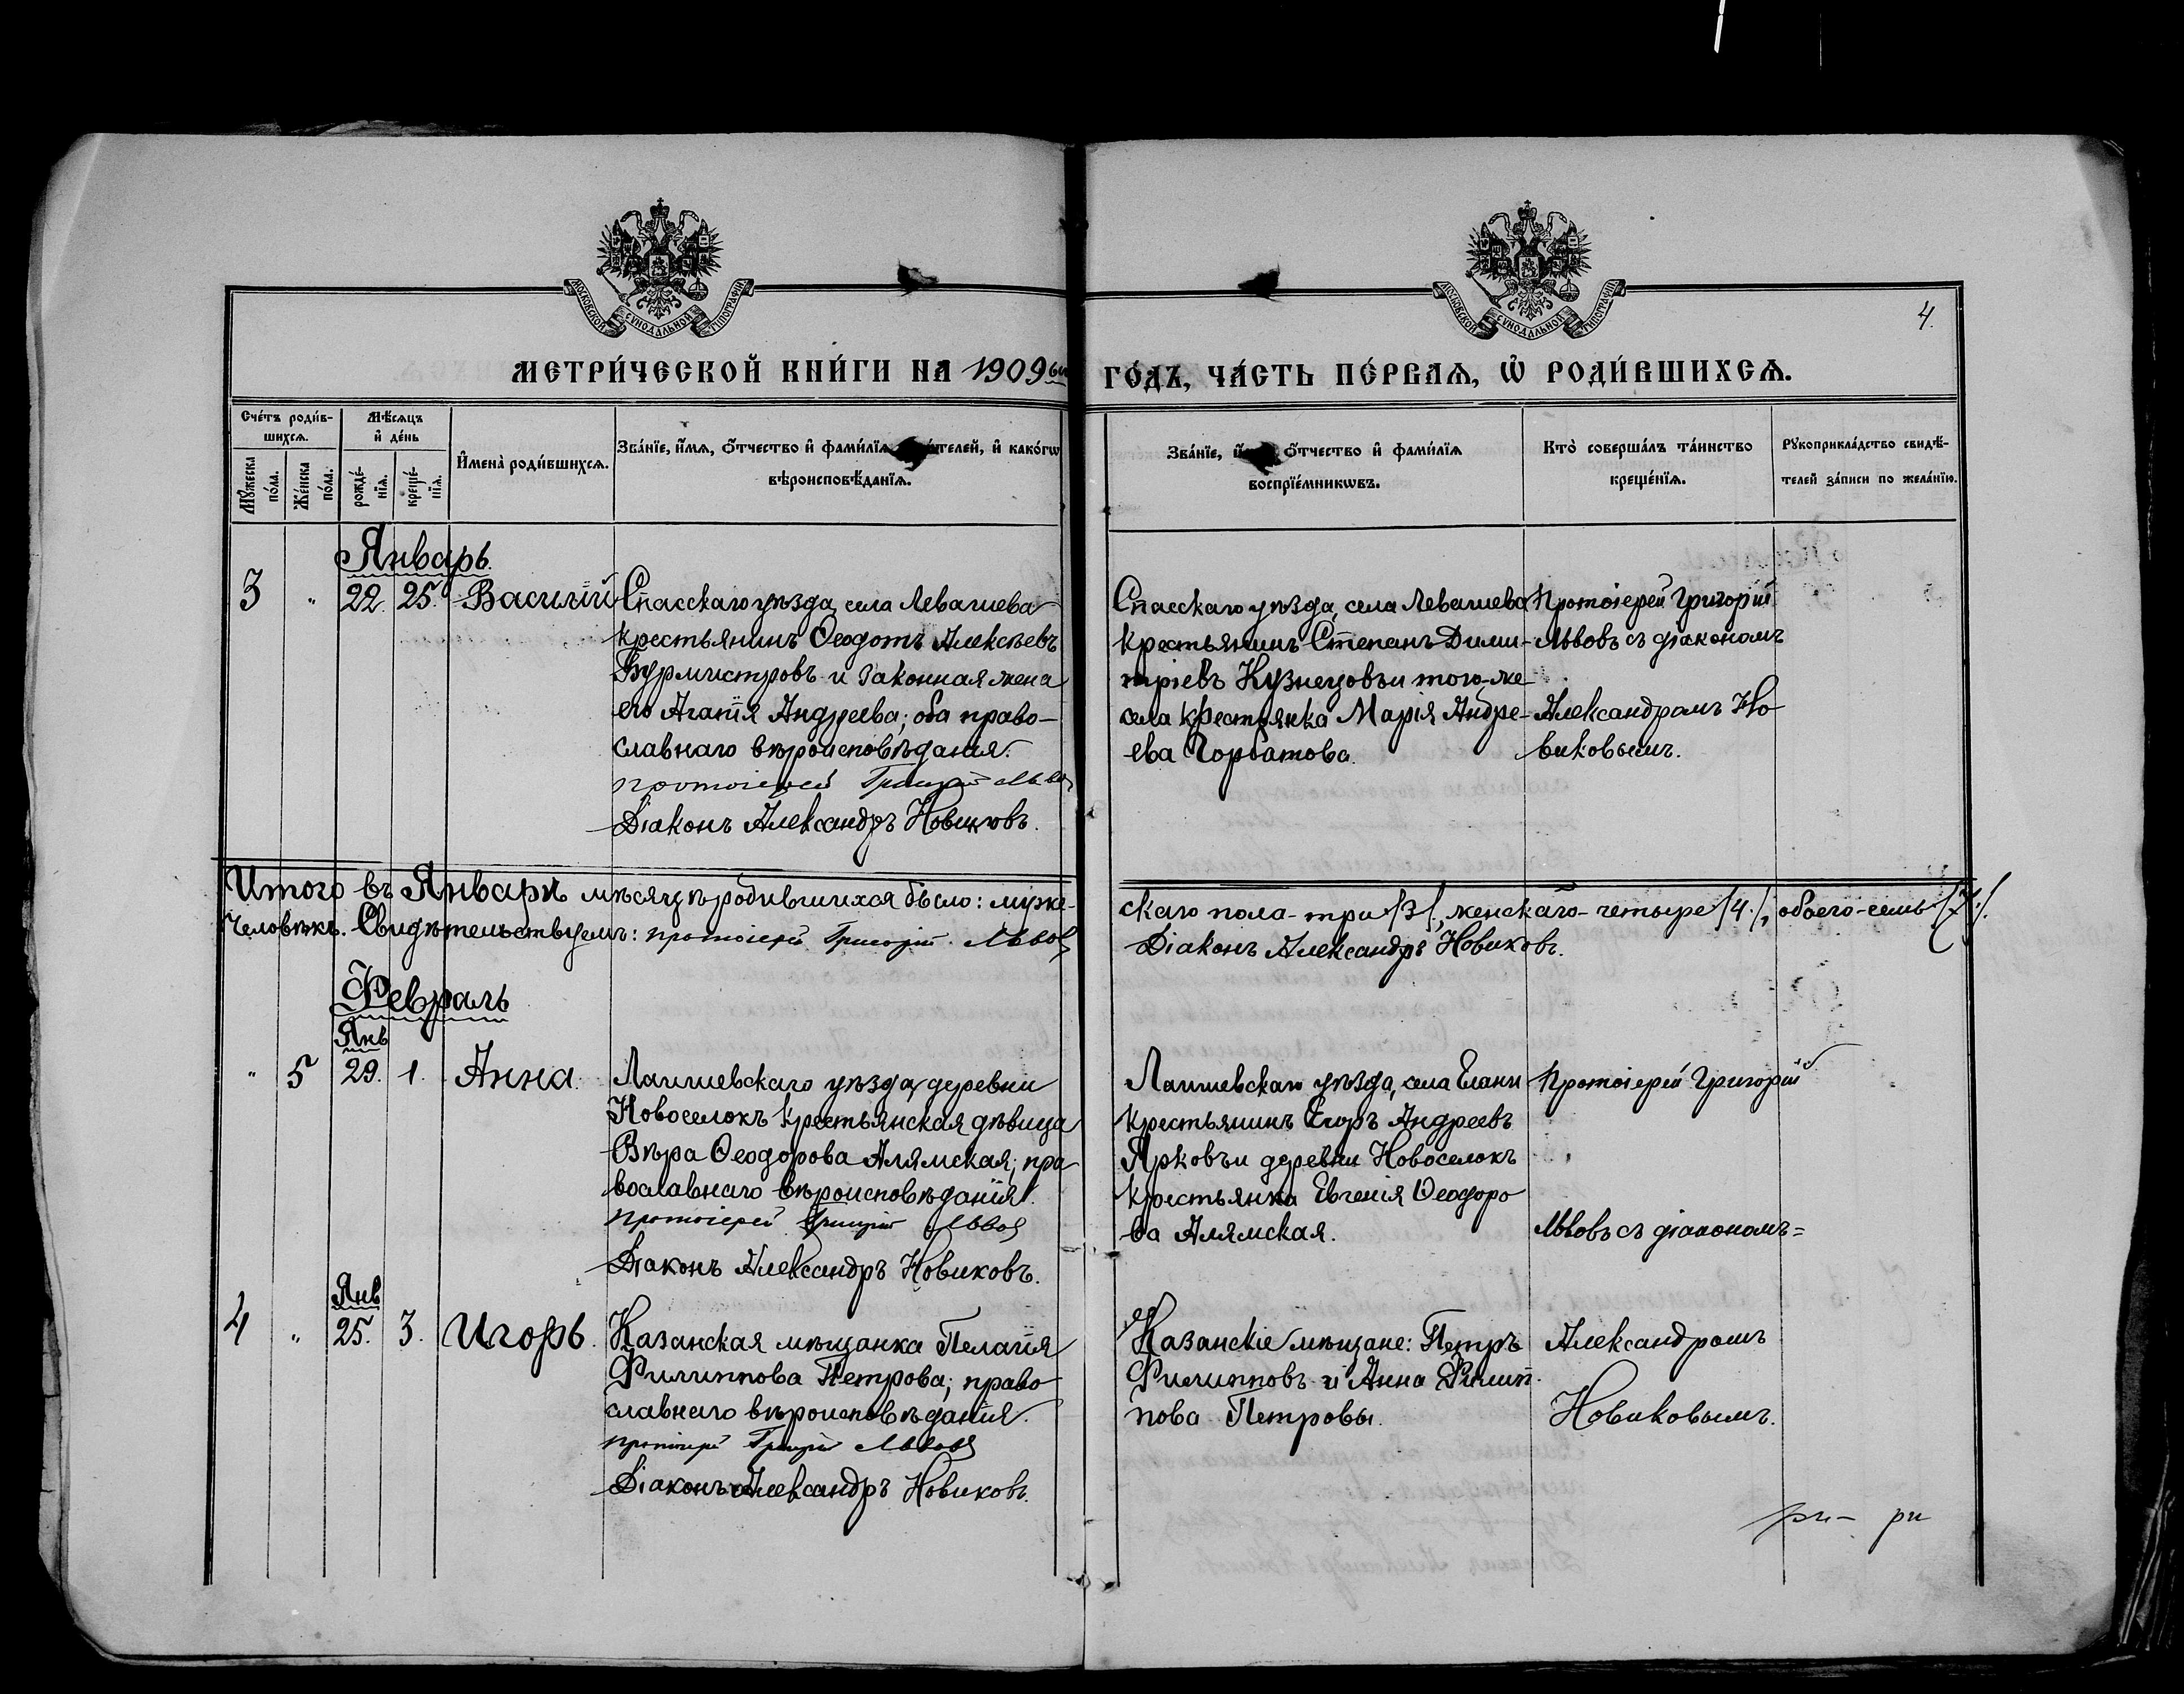 МОСКОВСКОЙ СУНОДАЛЬНОЙ ТИПОГРАФІИ
МОСКОВСКОЙ СУНОДАЛЬНОЙ ТИПОГРАФІИ
4.
МЕТРИ́ЧЕСКОЙ КНИ́ГИ НА 1909ый ГО́ДЪ, ЧА́СТЬ ПЕ́РВАѦ, Ѡ҆ РОДИ́ВШИХСѦ.
Сче́тъ роди́в-
шихсѧ.
Мꙋ́жеска по́ла.
Же́нска по́ла.
Мѣ́сѧцъ
и҆ де́нь
рожде́-
нїѧ.
креще́-
нїѧ.
И҆мена̀ роди́вшихсѧ.
Зва́нїе, и҆́мѧ, ѻ҆́тчество и҆ фами́лїѧ роди́телей, и҆ како́гѡ
вѣроисповѣ́данїѧ.
Зва́нїе, и҆́мѧ, ѻ҆́тчество и҆ фами́лїѧ
воспрїе́мникѡвъ.
Кто̀ соверша́лъ та́инство
креще́нїѧ.
Рꙋкоприкла́дство свидѣ́-
телей за́писи по жела́нїю.
Январь.
3 " 22. 25. Василій
Спасскаго уѣзда, села Левашева
крестьянинъ Ѳеодотъ Алексѣевъ
Бурмистровъ и законная жена
его Агапія Андреева; оба право-
славнаго вѣроисповѣданія.
протоіерей Григорій Львовъ
Діаконъ Александръ Новиковъ.
Спасскаго уѣзда, села Левашева
крестьянинъ Степанъ Дими-
тріевъ Кузнецовъ и того-же
села крестьянка Марія Андре-
ева Горбатова.
Протоіерей Григорій
Львовъ съ діакономъ
Александромъ Но
виковымъ.
Итого въ Январѣ мѣсяцѣ родившихся было: муже-
скаго пола - три /3/, женскаго - четыре /4./, обоего - семь /7./.
Человѣкъ. Свидѣтельствуемъ: протоіерей Григорій Львовъ
Діаконъ Александръ Новиковъ.
Февраль
Янв
" 5 29. 1. Анна.
Лаишевскаго уѣзда, деревни
Новоселокъ крестьянская дѣвица
Вѣра Ѳеодорова Алямская; пра
вославнаго вѣроисповѣданія.
протоіерей Григорій Львовъ
Діаконъ Александръ Новиковъ.
Лаишевскаго уѣзда, села Елани
крестьянинъ Егоръ Андреевъ
Ярковъ и деревни Новоселокъ
крестьянка Евгенія Ѳеодоро
ва Алямская.
Протоіерей Григорій
Львовъ съ діакономъ =
Янв
4 " 25. 3. Игорь.
Казанская мѣщанка Пелагія
Филиппова Петрова; право
славнаго вѣроисповѣданія.
протоіерей Григорій Львовъ
Діаконъ Александръ Новиковъ.
Казанскіе мѣщане: Петръ
Филипповъ и Анна Филип-
пова Петровы.
Александромъ
Новиковымъ.
ри- ри